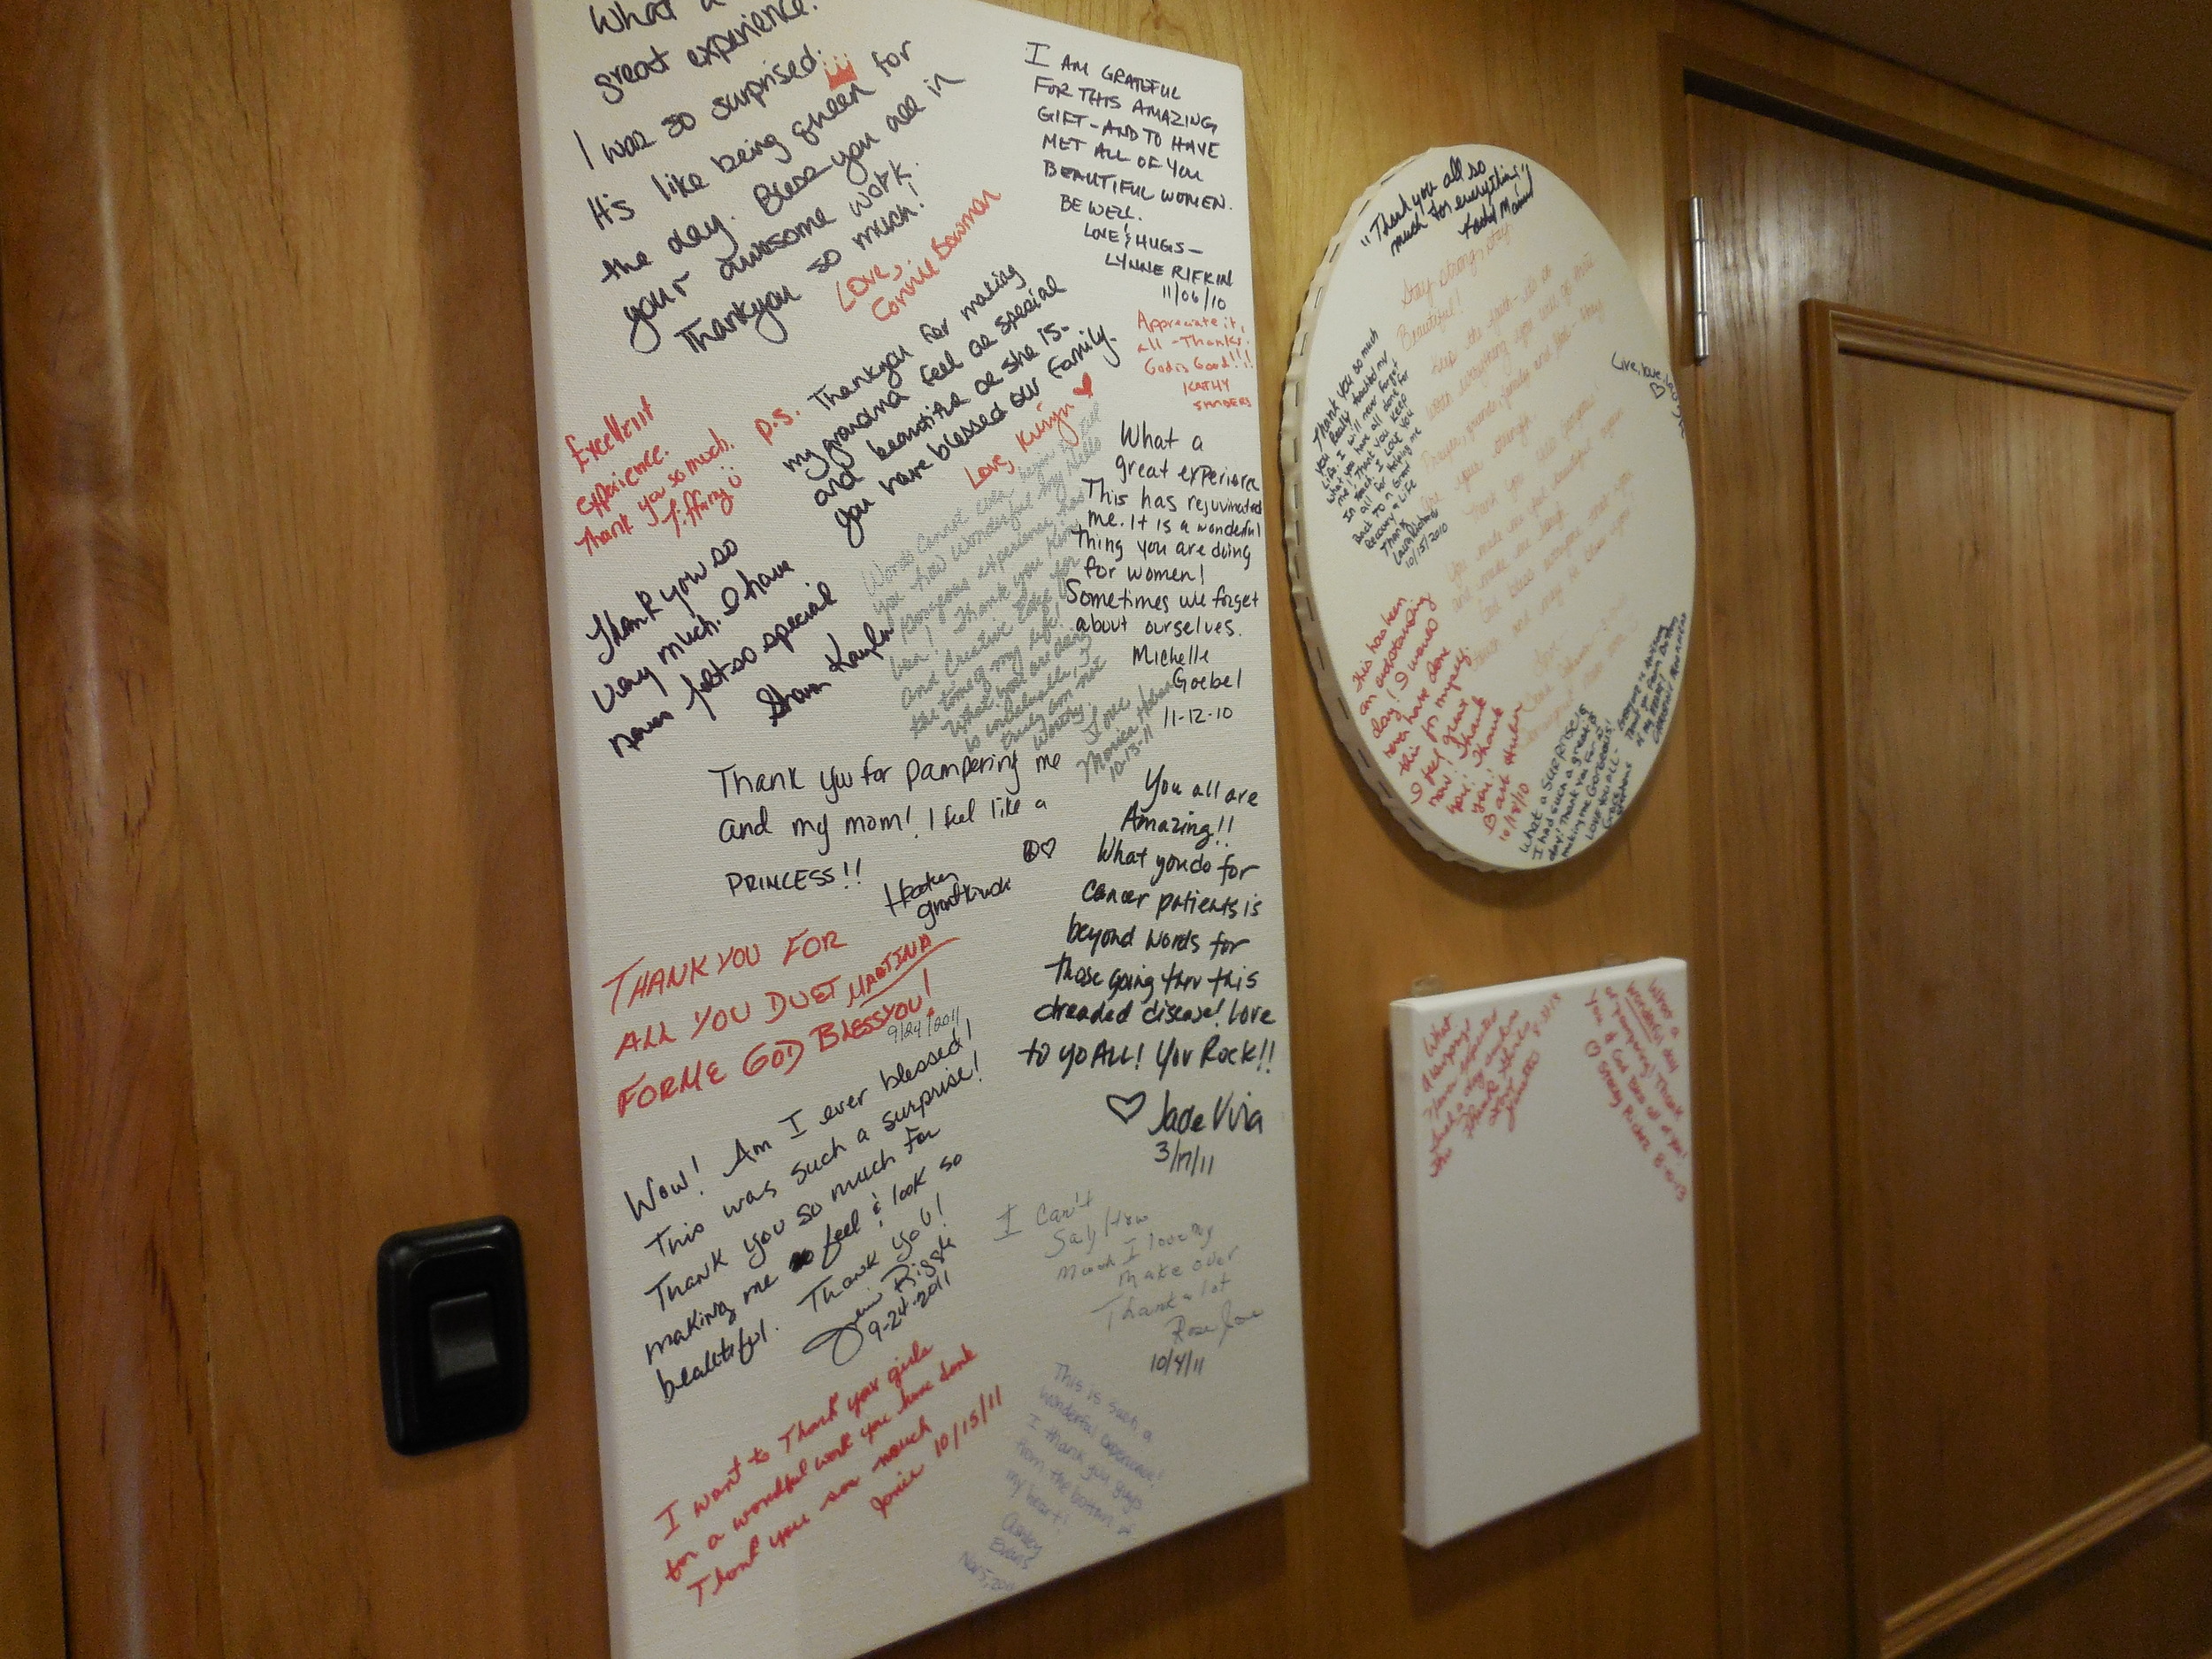 What a
great experience.
I was so surprised.
It's like being queen for
the day. Bless you all in
your awesome work.
Thankyou so much!
Love,
Connie Bowman
P.S. Thankyou for making
my grandma feel as special
and beautiful as she is.
You have blessed our family.
Love,
Excellent
experience.
Thank you so much.
Tiffany
Thank you so
very much. I have
never felt so special
Words cannot even begin to tell
you how wonderful my
experience has
been! Thank you
and
the time of my life!
What you are doing
is
truly
worthy.
Love
Monica
10-13-11
Thank you for pampering me
and my mom! I feel like a
PRINCESS!!
THANK YOU FOR
ALL YOU DUET MARTINA
FOR ME GOD BLESS YOU!
9/24/2011
Wow! Am I ever blessed!
This was such a surprise!
Thank you so much for
making me feel & look so
beautiful. Thank you!
Riggle
9-24-2011
I want to Thank your girls
for a wondful work you have donk
Thank you son mouch
Jonie 10/15/11
I AM GRATEFUL
FOR THIS AMAZING
GIFT - AND TO HAVE
MET ALL OF YOU
BEAUTIFUL WOMEN.
BE WELL.
LOVE & HUGS -
LYNNE RIFKIN
11/06/10
Appreciate it,
all - Thanks.
God is Good!!!
KATHY
SANDERS
What a
great experience
This has rejuvinated
me. It is a wonderful
thing you are doing
for women!
Sometimes we forget
about ourselves.
Michelle
Goebel
11-12-10
You all are
Amazing!!
What you do for
cancer patients is
beyond words for
those going thru this
dreaded disease! Love
to yo ALL! You Rock!!
Jade Viva
3/17/11
I can't
Say How
much I love my
make over
Thank a lot
Rose
10/4/11
This is such a
wonderful experience!
I thank you guys
from the bottom of
my heart!
Ashley
Evans
Nov 5, 2011
"Thank you all so
much for everything"
Stay strong, stay
Beautiful!
keep the fight - its so
worth everything you will go thru
Prayer, friends, family and God - they
are your strength.
Thank you all
you made me feel beautiful again
and made me laugh.
God bless everyone that you
Live, love, laugh
Thank you so much
you really touched my
Life. I will never forget
what you have all done for
me! Thank you keep
I Love you
all for helping me
Back to a Great
Recovery & Life
Thank
10/15/2010
This has been
an outstanding
day! I would
never have done
this for myself.
I feel great
now! Thank
you! Thank
you!
Barb Huber
10/18/10
What a SURPRISE!
I had such a great
day! Thank you for
making me Gorgeous!
LOVE YOU ALL -
Grace
Stephens
What
a
Never expected
such a day
Thank
you
What a
Wonderful day
of pampering! Thank
you & God bless all of you!
Stacey 8-10-13